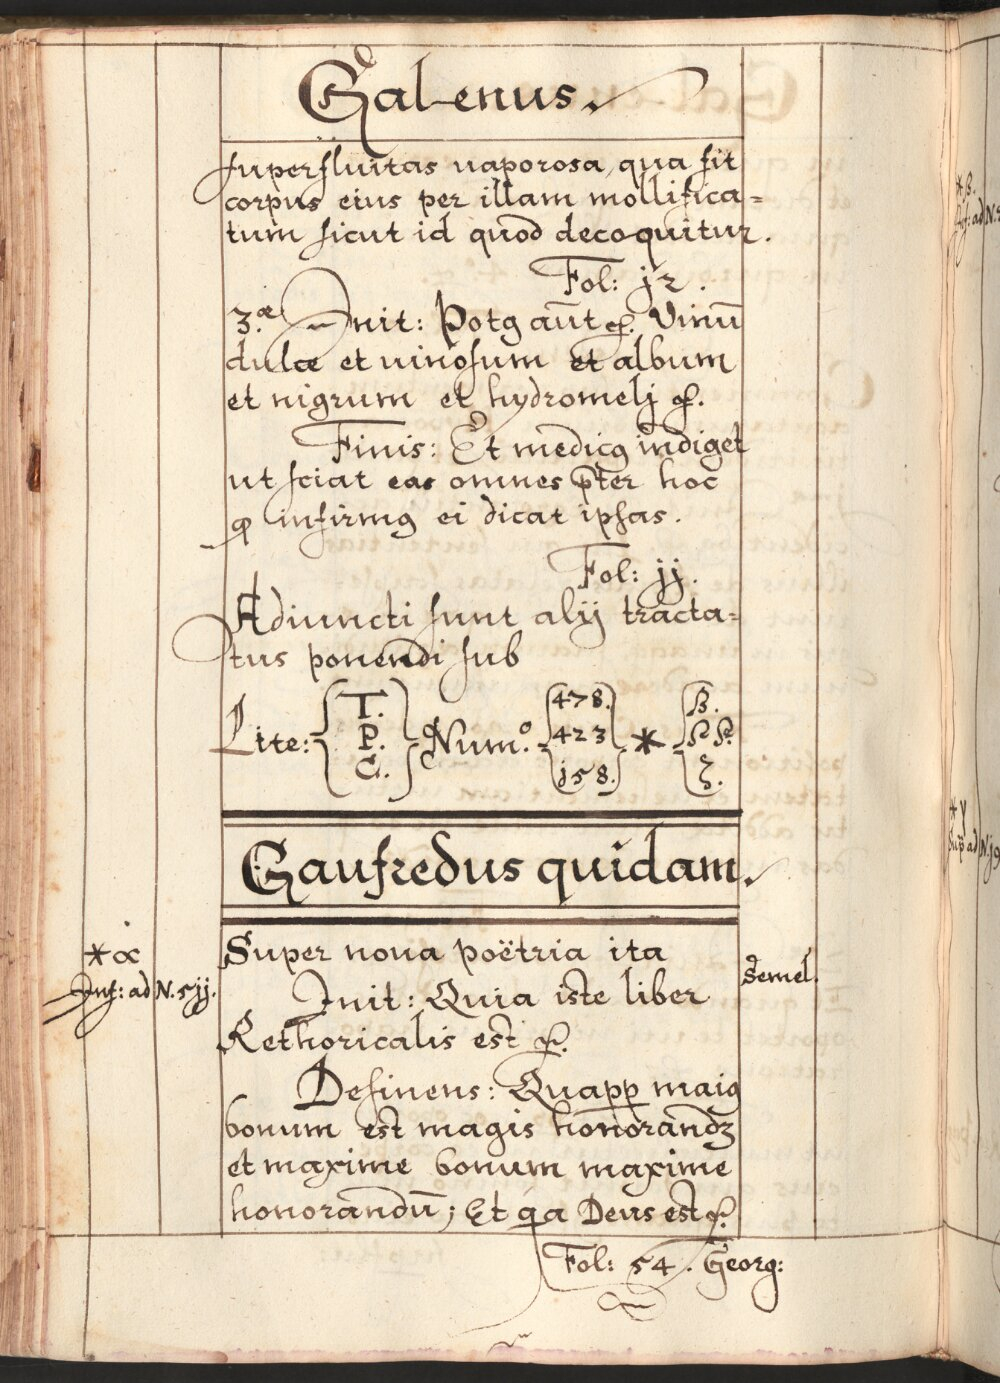 Gal-enus.
superfluitas uaporosa, qua fit
corpus eius per illam mollifica=
tum sicut id quod decoquitur.
Fol: j2.
3.ae Init: Potg aūt &c. Vinū
dulce et uinosum et album
et nigrum et hydromelj &c.
Finis: Et medicg indiget
ut sciat eas omnes p̄ter hoc
infirmg ei dicat ipsas.
Fol: jj.
Adiuncti sunt alij tracta=
tus ponendi sub
Lite: T. P. C. Num.o 478. 423 j58. * ß. ζ.
Gaufredus quidam.
Super noua poëtria ita
Init: Quia iste liber
Rethoricalis est &c.
Desinens: Quapp maig
bonum est magis honorandʒ
et maxime bonum maxime
honorandū; Et qa Deus est &c.
Fol: 54. Georg:
*α
Inf: ad N. 5jj.
Semel.
*ß.
Inf: ad N.
*γ
Sup ad N. j9